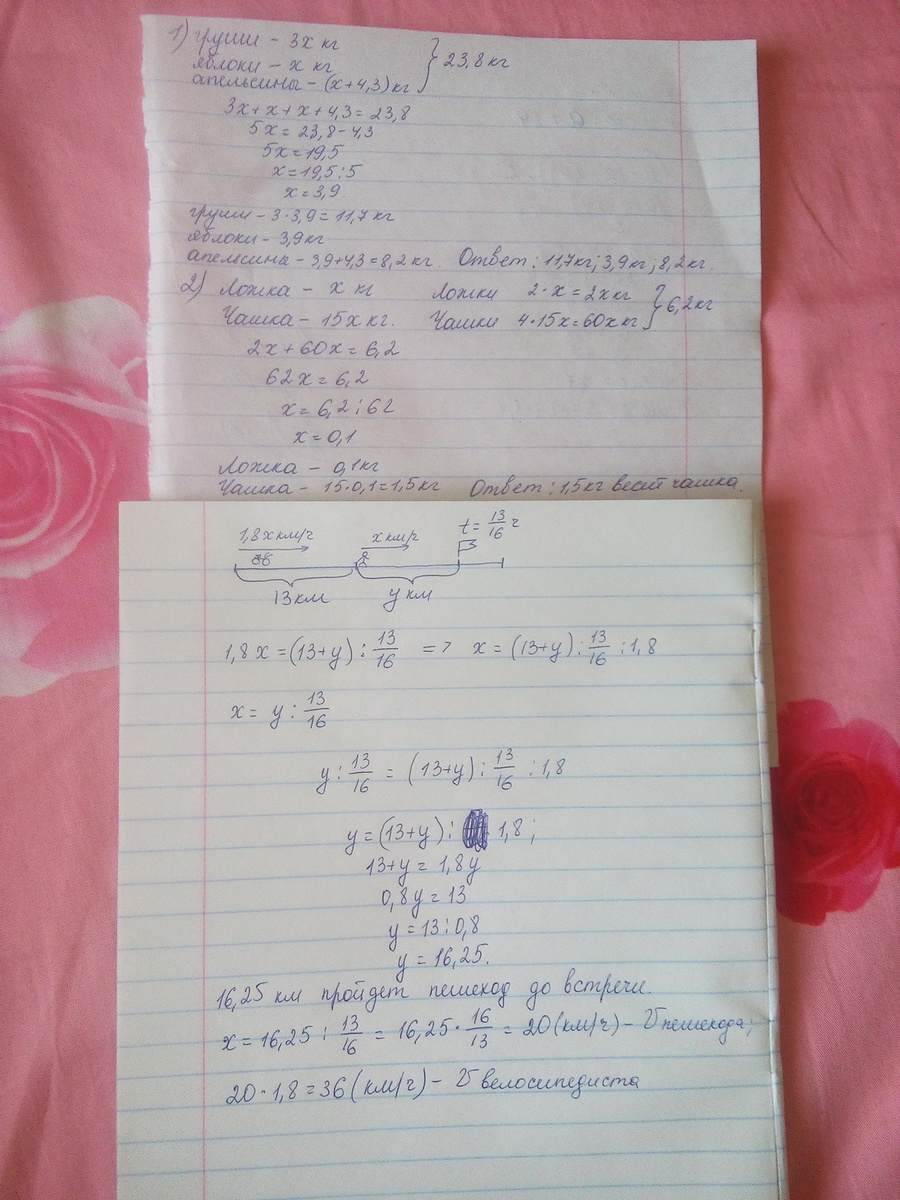 1) груши - 3х кг
яблоки - х кг
апельсины - (х+4,3) кг } 23,8 кг
3х+х+х+4,3=23,8
5х=23,8-4,3
5х=19,5
х=19,5:5
х=3,9
груши - 3·3,9=11,7кг
яблоки - 3,9кг
апельсины - 3,9+4,3=8,2кг. Ответ: 11,7кг; 3,9кг; 8,2кг.
2) Ложка - х кг Ложки 2·х=2х кг
Чашка - 15х кг. Чашки 4·15х=60х кг } 6,2кг
2х+60х=6,2
62х=6,2
х=6,2:62
х=0,1
Ложка - 0,1кг
Чашка - 15·0,1=1,5кг Ответ: 1,5кг весит чашка.
1,8х км/ч х км/ч t=13/16 ч
13км у км
1,8х=(13+у):13/16 => х=(13+у):13/16:1,8
х=у:13/16
у:13/16=(13+у):13/16:1,8
у=(13+у): 1,8;
13+у=1,8у
0,8у=13
у=13:0,8
у=16,25.
16,25 км пройдет пешеход до встречи.
х=16,25:13/16=16,25·16/13=20(км/ч)-V пешехода;
20·1,8=36(км/ч)-V велосипедиста